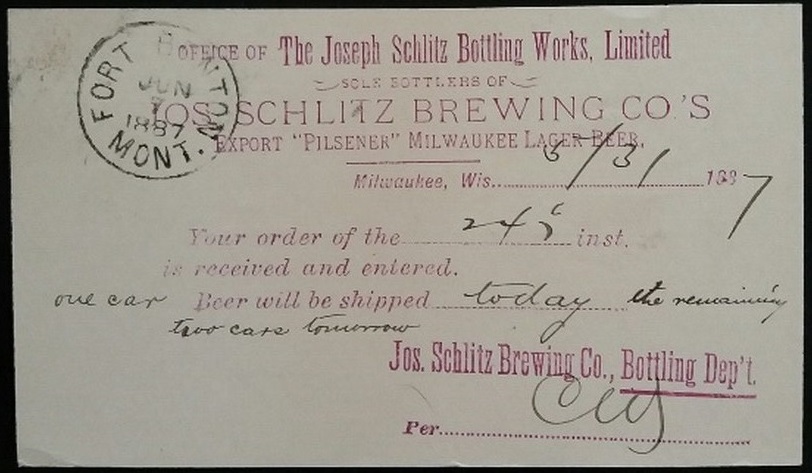 OFFICE OF The Joseph Schlitz Bottling Works, Limited
SOLE BOTTLERS OF
JOS. SCHLITZ BREWING CO.'S
EXPORT "PILSENER" MILWAUKEE LAGER BEER,
FORT BENTON
JUN
7
1887
MONT.
Milwaukee, Wis. 5/31 1887
Your order of the 24th inst.
is received and entered.
one car Beer will be shipped today the remaining
two cars tomorrow
Jos. Schlitz Brewing Co., Bottling Dep't.
Per